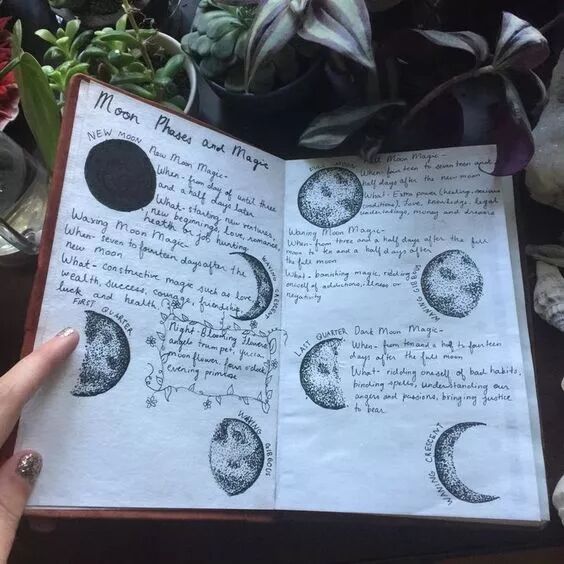 Moon Phases and Magic
NEW MOON
New Moon Magic-
When- from day of until three
and a half days later
What- starting new ventures,
new beginnings, love, romance,
health or job hunting
Waxing Moon Magic-
When- seven to fourteen days after the
new moon
What- constructive magic such as love,
wealth, success, courage, friendship,
luck, and health
WAXING CRESCENT
FIRST QUARTER
Night-Blooming flowers
angels trumpet, yucca
moon flower, four o'clock
evening primrose
WAXING GIBBOUS
Full Moon Magic-
When- fourteen to seventeen and
half days after the new moon
What- Extra power (healing,
conditions), love, knowledge, legal
undertakings, money and dreams
Waning Moon Magic-
When- from three and a half days after the full
moon to ten and a half days after
the full moon
What- banishing magic, ridding
oneself of addictions, illness or
negativity
WANING GIBBOUS
LAST QUARTER
Dark Moon Magic-
When- from ten and a half to fourteen
days after the full moon
What- ridding oneself of bad habits,
binding spells, understanding our
angers and passions, bringing justice
to bear
WANING CRESCENT